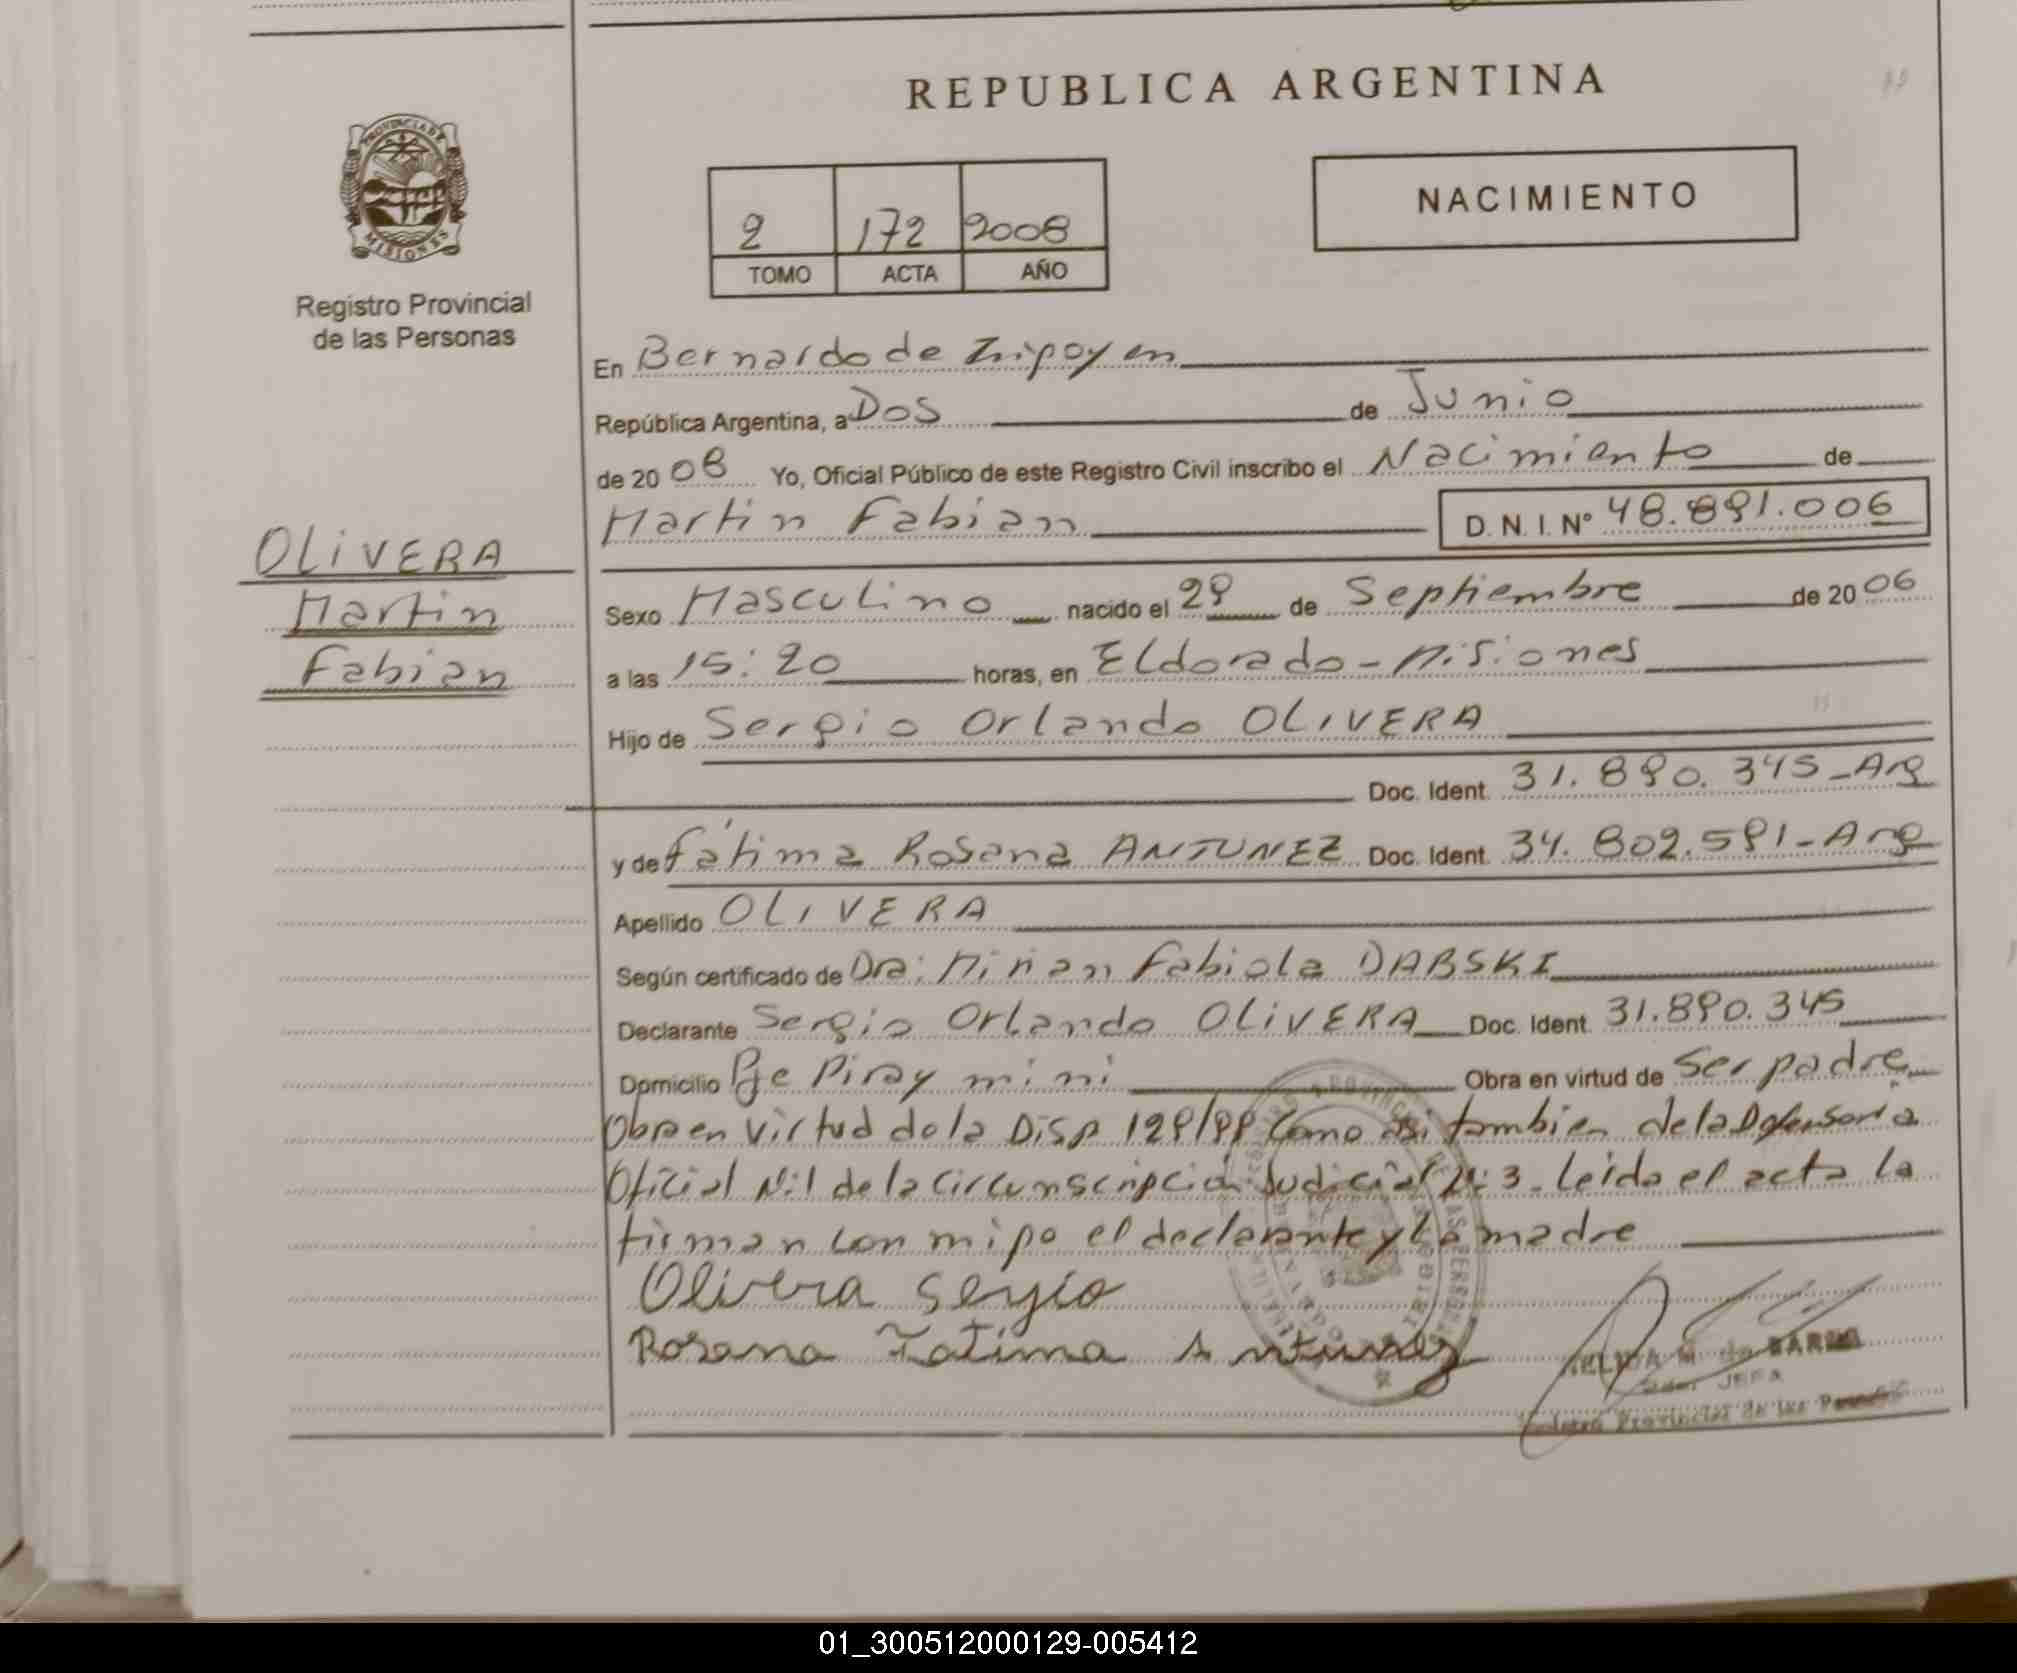 REPUBLICA ARGENTINA
PROVINCIA DE
MISIONES
Registro Provincial
de las Personas
NACIMIENTO
2 172 2008
TOMO ACTA AÑO
En Bernardo de Irigoyen
República Argentina, a Dos de Junio
de 20 08 Yo, Oficial Público de este Registro Civil inscribo el Nacimiento de
Martin Fabian D.N.I. Nº 48.891.006
OLIVERA
Martin
Fabian
Sexo Masculino nacido el 29 de Septiembre de 20 06
a las 15:20 horas, en Eldorado - Misiones
Hijo de Sergio Orlando OLIVERA
Doc. Ident. 31.890.345-Arg
y de Fátima Rosana ANTUNEZ Doc. Ident. 34.802.591-Arg
Apellido OLIVERA
Según certificado de Dra: Mirian Fabiola DABSKI
Declarante Sergio Orlando OLIVERA Doc. Ident. 31.890.345
Domicilio Pje Piray mini Obra en virtud de Ser padre
Obra en virtud de la Disp 129/99 Como asi tambien de la Defensoria
Oficial Nº1 de la Circunscripción Judicial Nº 3. Leida el acta la
firman con migo el declarante y la madre
Olivera Sergio
Rosana Fatima Antunez
JEFA
Provincial de las
01_300512000129-005412